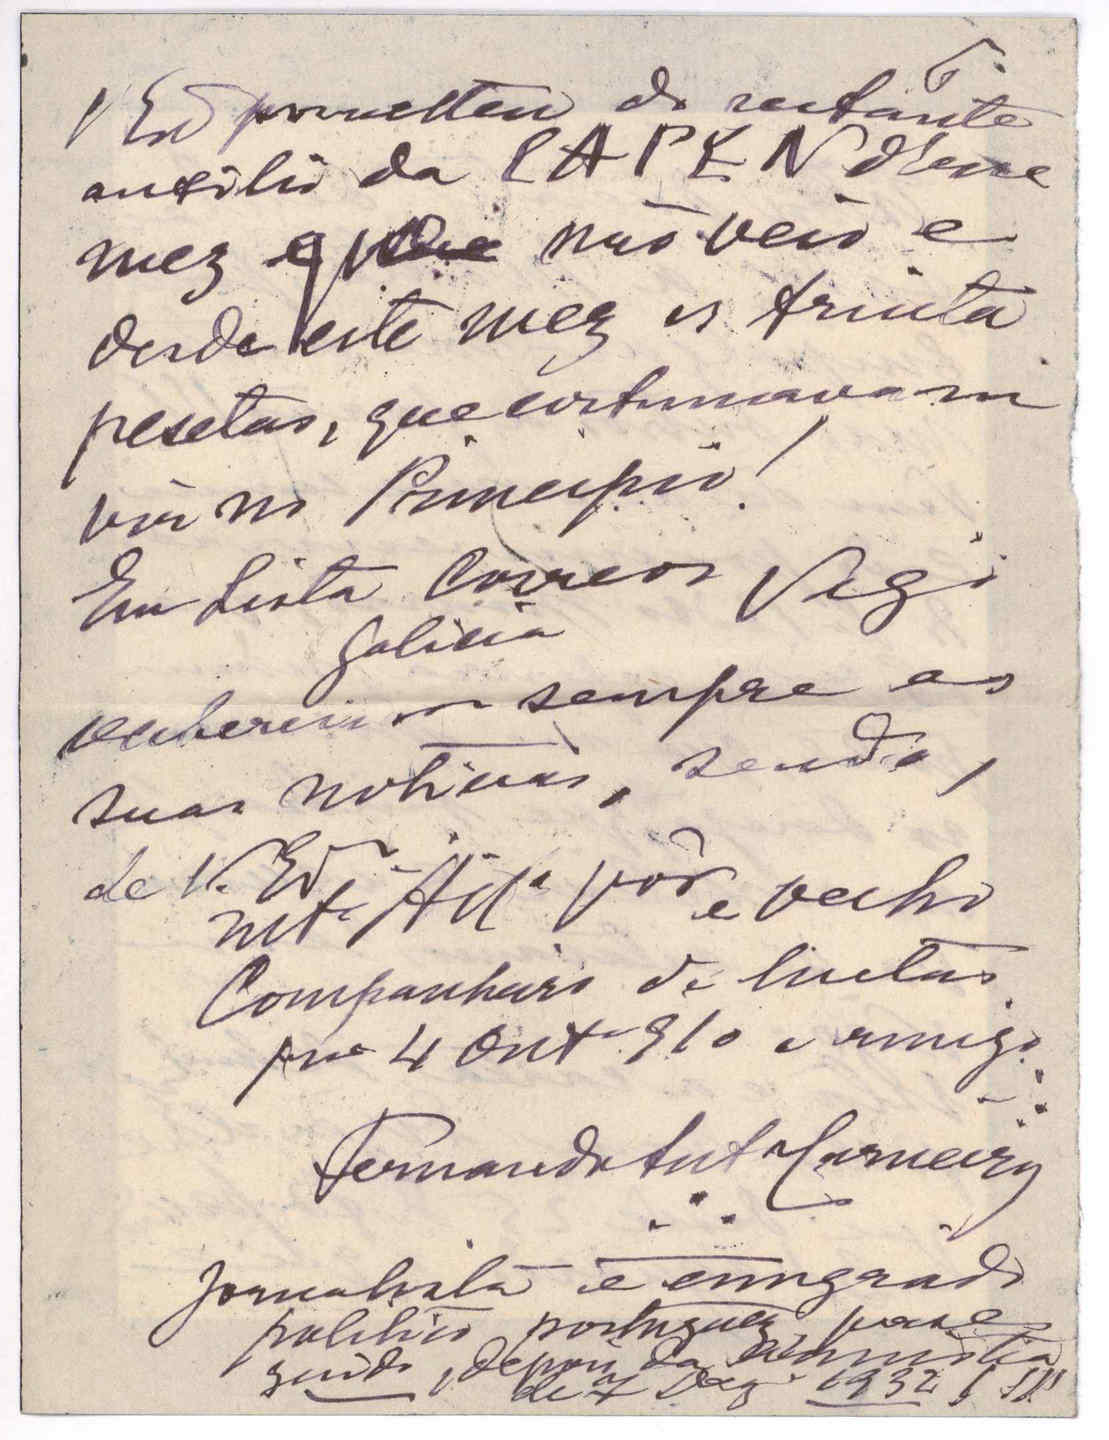 6.
V Ex.ª prometteu do restante
auxilio da CAPEN d'esse
mez que não veio e
desde este mez as trinta
pesetas, que costumavam
vir no Principio!
Em Lista Correos Vigo
Galicia
receberei sempre as
suas noticias, sendo,
de V. Ex.ª
mt.º At.º e velho
Companheiro de luctas
pro 4 Out.º 910 e amigo
Fernando Ant.º Carneiro
Jornalista e emigrado
politico portuguez, perse
guido, depois da Amnistia
de 7 Dez.º 1932